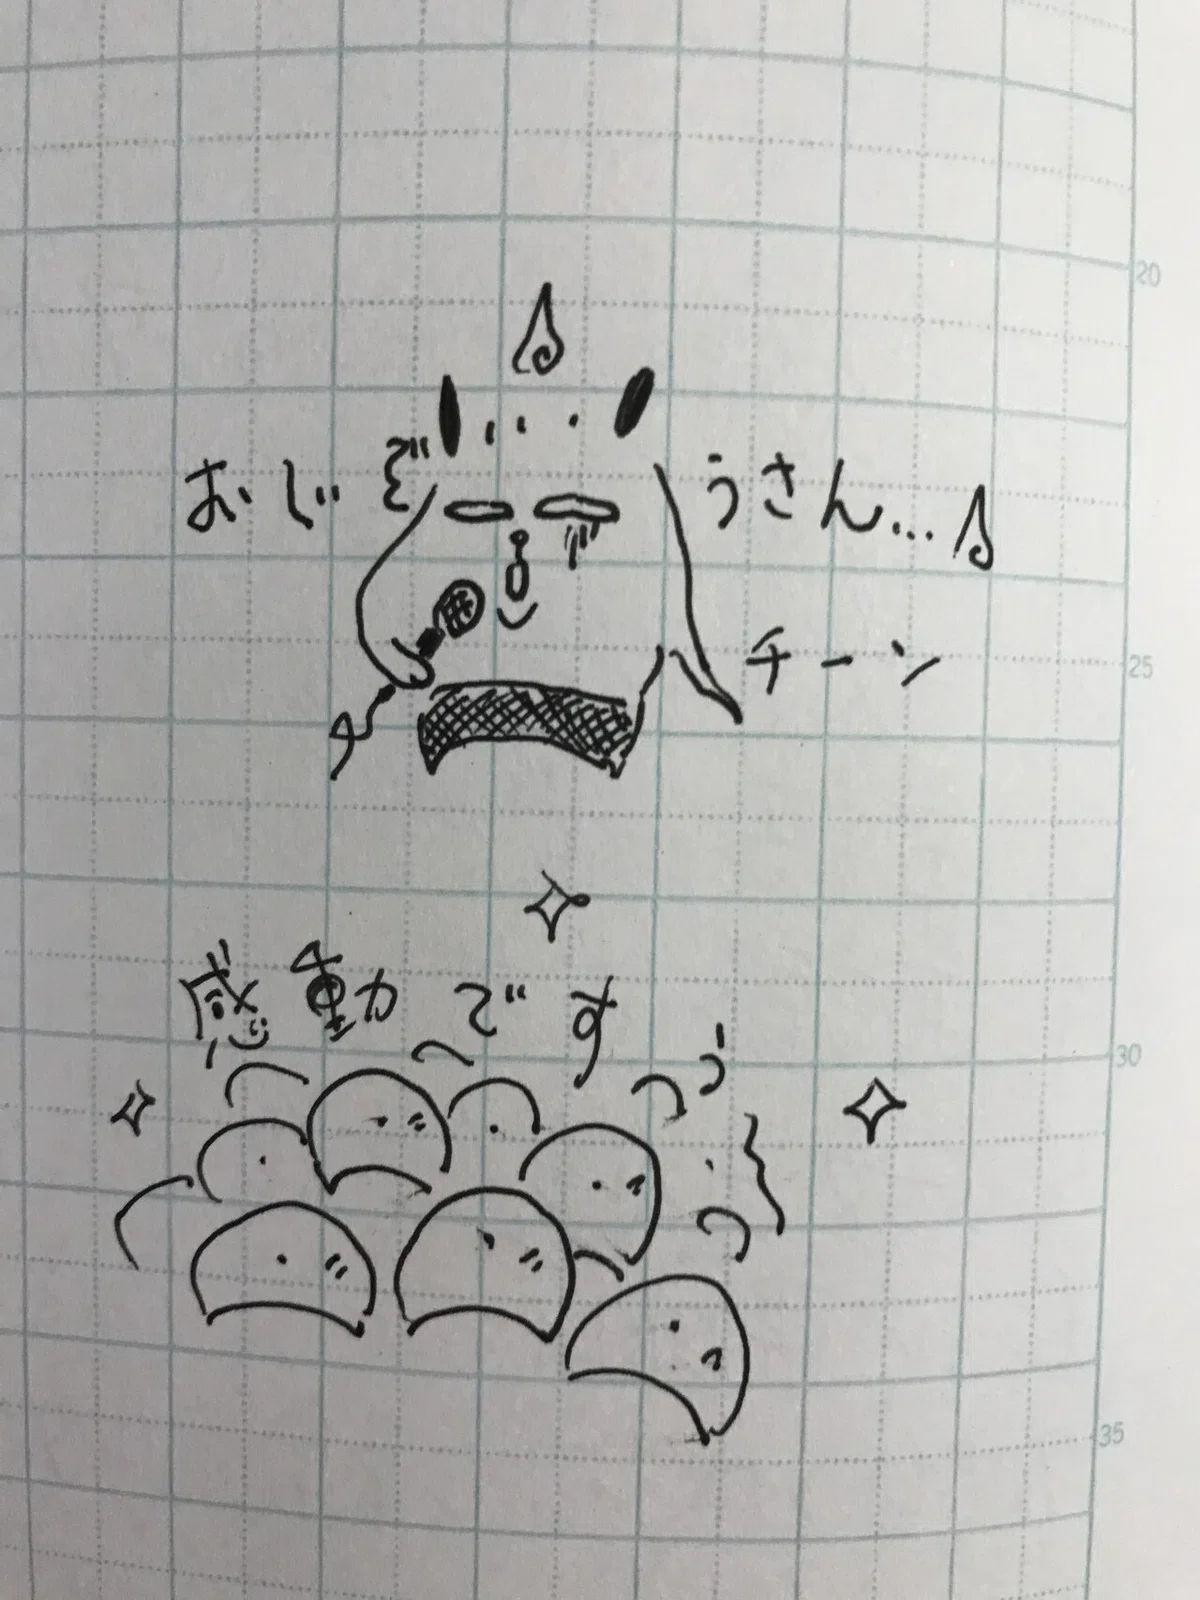 おじぞうさん…
チーン
感動ですぅ
20
25
30
35